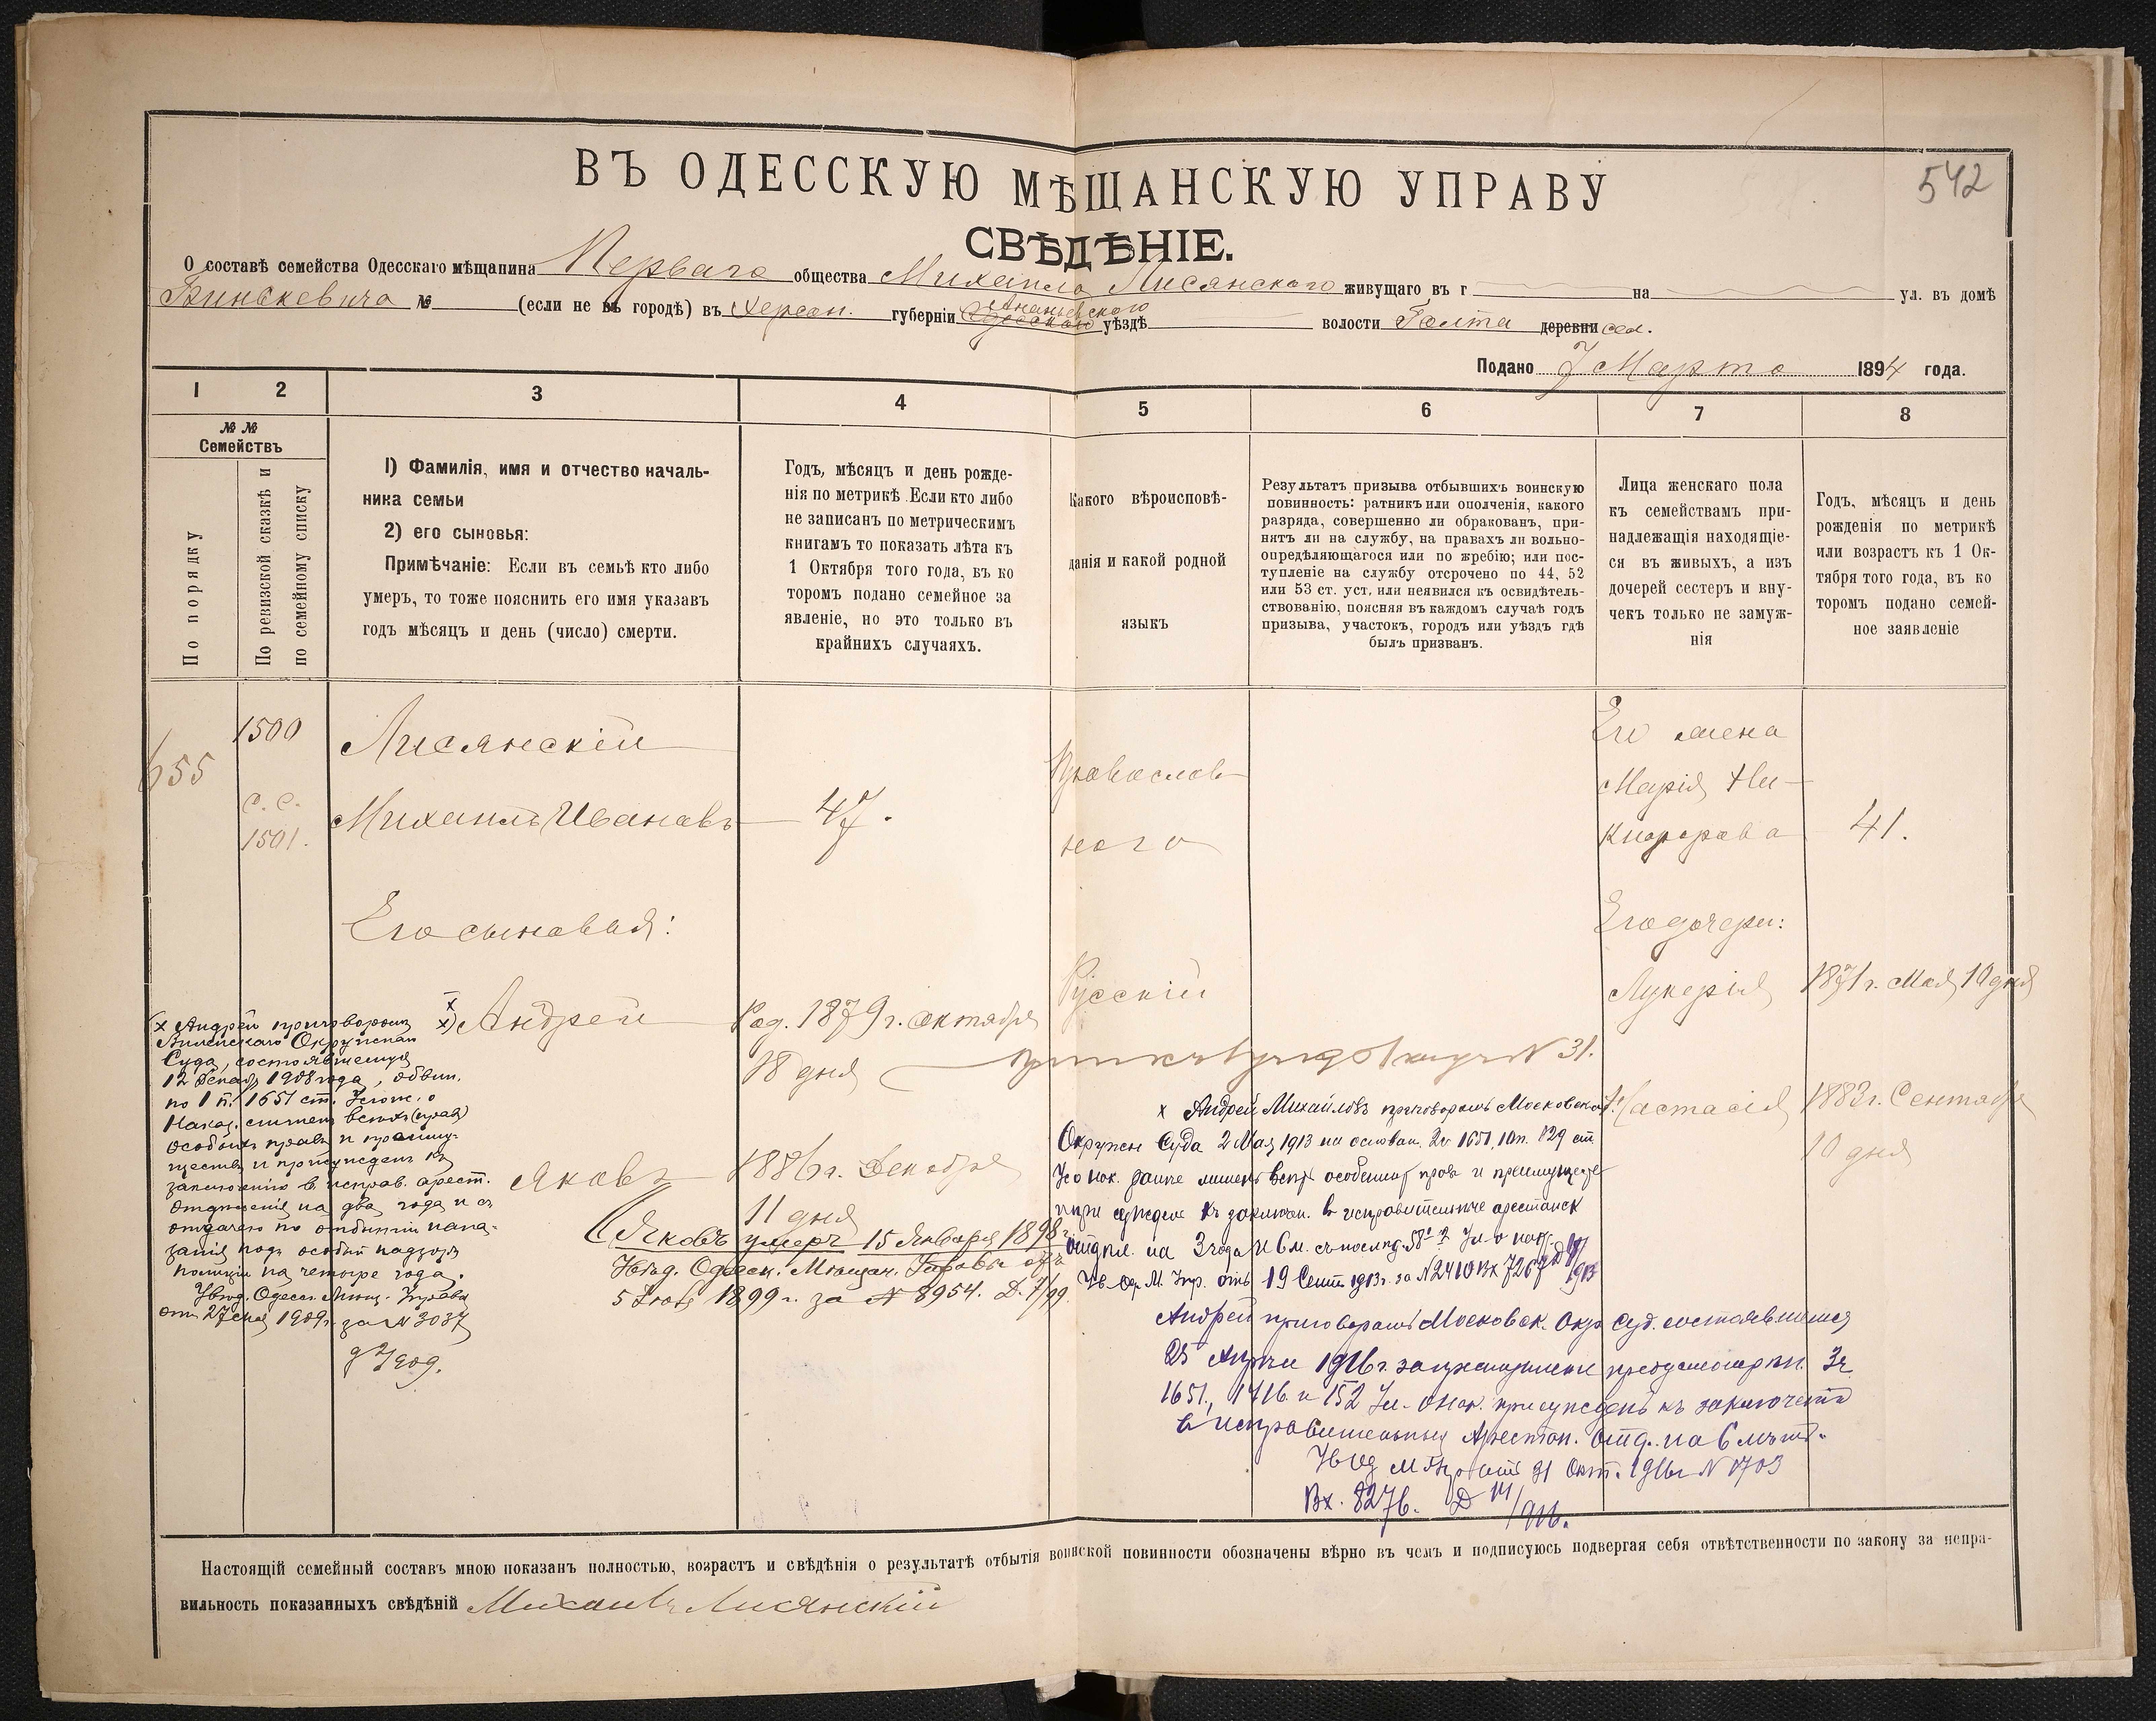 542
ВЪ ОДЕССКУЮ МѢЩАНСКУЮ УПРАВУ
СВѢДѢНІЕ.
О составѣ семейства Одесскаго мѣщанина Перваго общества Михаила Лисянскаго живущаго въ г на ул. въ домѣ
№ (если не въ городѣ) въ Херсон. губерніи Одесскаго Ананьевскаго уѣздѣ волости Голта деревни сел.
Подано 7 Марта 1894 года.
1 2 3 4 5 6 7 8
№ №
Семействъ
По порядку
По ревизской сказкѣ и
по семейному списку
1) Фамилія, имя и отчество началь-
ника семьи
2) его сыновья:
Примѣчаніе: Если въ семьѣ кто либо
умеръ, то тоже пояснить его имя указавъ
годъ мѣсяцъ и день (число) смерти.
Годъ, мѣсяцъ и день рожде-
нія по метрикѣ. Если кто либо
не записанъ по метрическимъ
книгамъ то показать лѣта къ
1 Октября того года, въ ко
торомъ подано семейное за
явленіе, но это только въ
крайнихъ случаяхъ.
Какого вѣроисповѣ-
данія и какой родной
языкъ
Результатъ призыва отбывшихъ воинскую
повинность: ратникъ или ополченія, какого
разряда, совершенно ли обракованъ, при-
нятъ ли на службу, на правахъ ли вольно-
опредѣляющагося или по жребію; или пос-
тупленіе на службу отсрочено по 44, 52
или 53 ст. уст. или неявился къ освидѣтель-
ствованію, поясняя въ каждомъ случаѣ годъ
призыва, участокъ, городъ или уѣздъ гдѣ
былъ призванъ.
Лица женскаго пола
къ семействамъ при-
надлежащія находящіе-
ся въ живыхъ, а изъ
дочерей сестеръ и вну-
чекъ только не замуж-
нія
Годъ, мѣсяцъ и день
рожденія по метрикѣ
или возрастъ къ 1 Ок-
тября того года, въ ко
торомъ подано семей-
ное заявленіе
655
1500
с. с.
1501.
Лисянскій
Михаилъ Ивановъ
47.
Православ-
наго
Его жена
Марія Ни-
кифорова
41.
Его сыновья:
Его дочери:
х) Андрей
Род. 1879 г. октября
18 дня
Русскій
Лукерія
1871 г. Мая 10 дня
№ 31.
Настасія
1883 г. Сентября
10 дня
Яковъ
1886 г. Декабря
11 дня
(Яковъ умеръ 15 Января 1898 г.
Увѣд. Одесск. Мѣщан. Управы отъ
5 1899 г. за № 8954.
х Андрей приговоромъ
Окружнаго
Суда, состоявшемуся
12 1908 года, обвин.
по 1 п. 1651 ст. Улож. о
Наказ. лишенъ всѣхъ (прав)
особыхъ правъ и преиму-
ществъ и присужденъ къ
заключенію в исправ. арест.
отдѣленія на два года и съ
отдачею по отбытіи нака-
занія подъ особый надзоръ
полиціи на четыре года.
Увѣд. Одесск. Мѣщ. Управы
от 27 1909 г. за № 3037
х Андрей Михайловъ приговоромъ Московскаго
Окружн Суда 2 Мая 1913 на основан. 2 ч 1651, 1 п. 129 ст
лишенъ всѣхъ особенныхъ правъ и преимуществ
къ заключен. в исправительные арестантск
отдѣл. на 3 года и 6 м. съ послѣд. 58
Ув. Од. М. Упр. отъ 19 Сент 1913 г. за № 2410 Вх 7267
Андрей приговоромъ Московск. Окр Суд. состоявшемся
25 1916 г. 3 ч.
1651, и 152 Ул. о нак. присужденъ къ заключенію
в исправительныя Арестан. Отд. на 6 мѣст.
Окт. 1916 г № 1703
Вх. 8276.
Настоящій семейный составъ мною показанъ полностью, возрастъ и свѣдѣнія о результатѣ отбытія воинской повинности обозначены вѣрно въ чемъ и подписуюсь подвергая себя отвѣтственности по закону за непра-
вильность показанныхъ свѣдѣній Михаилъ Лисянскій